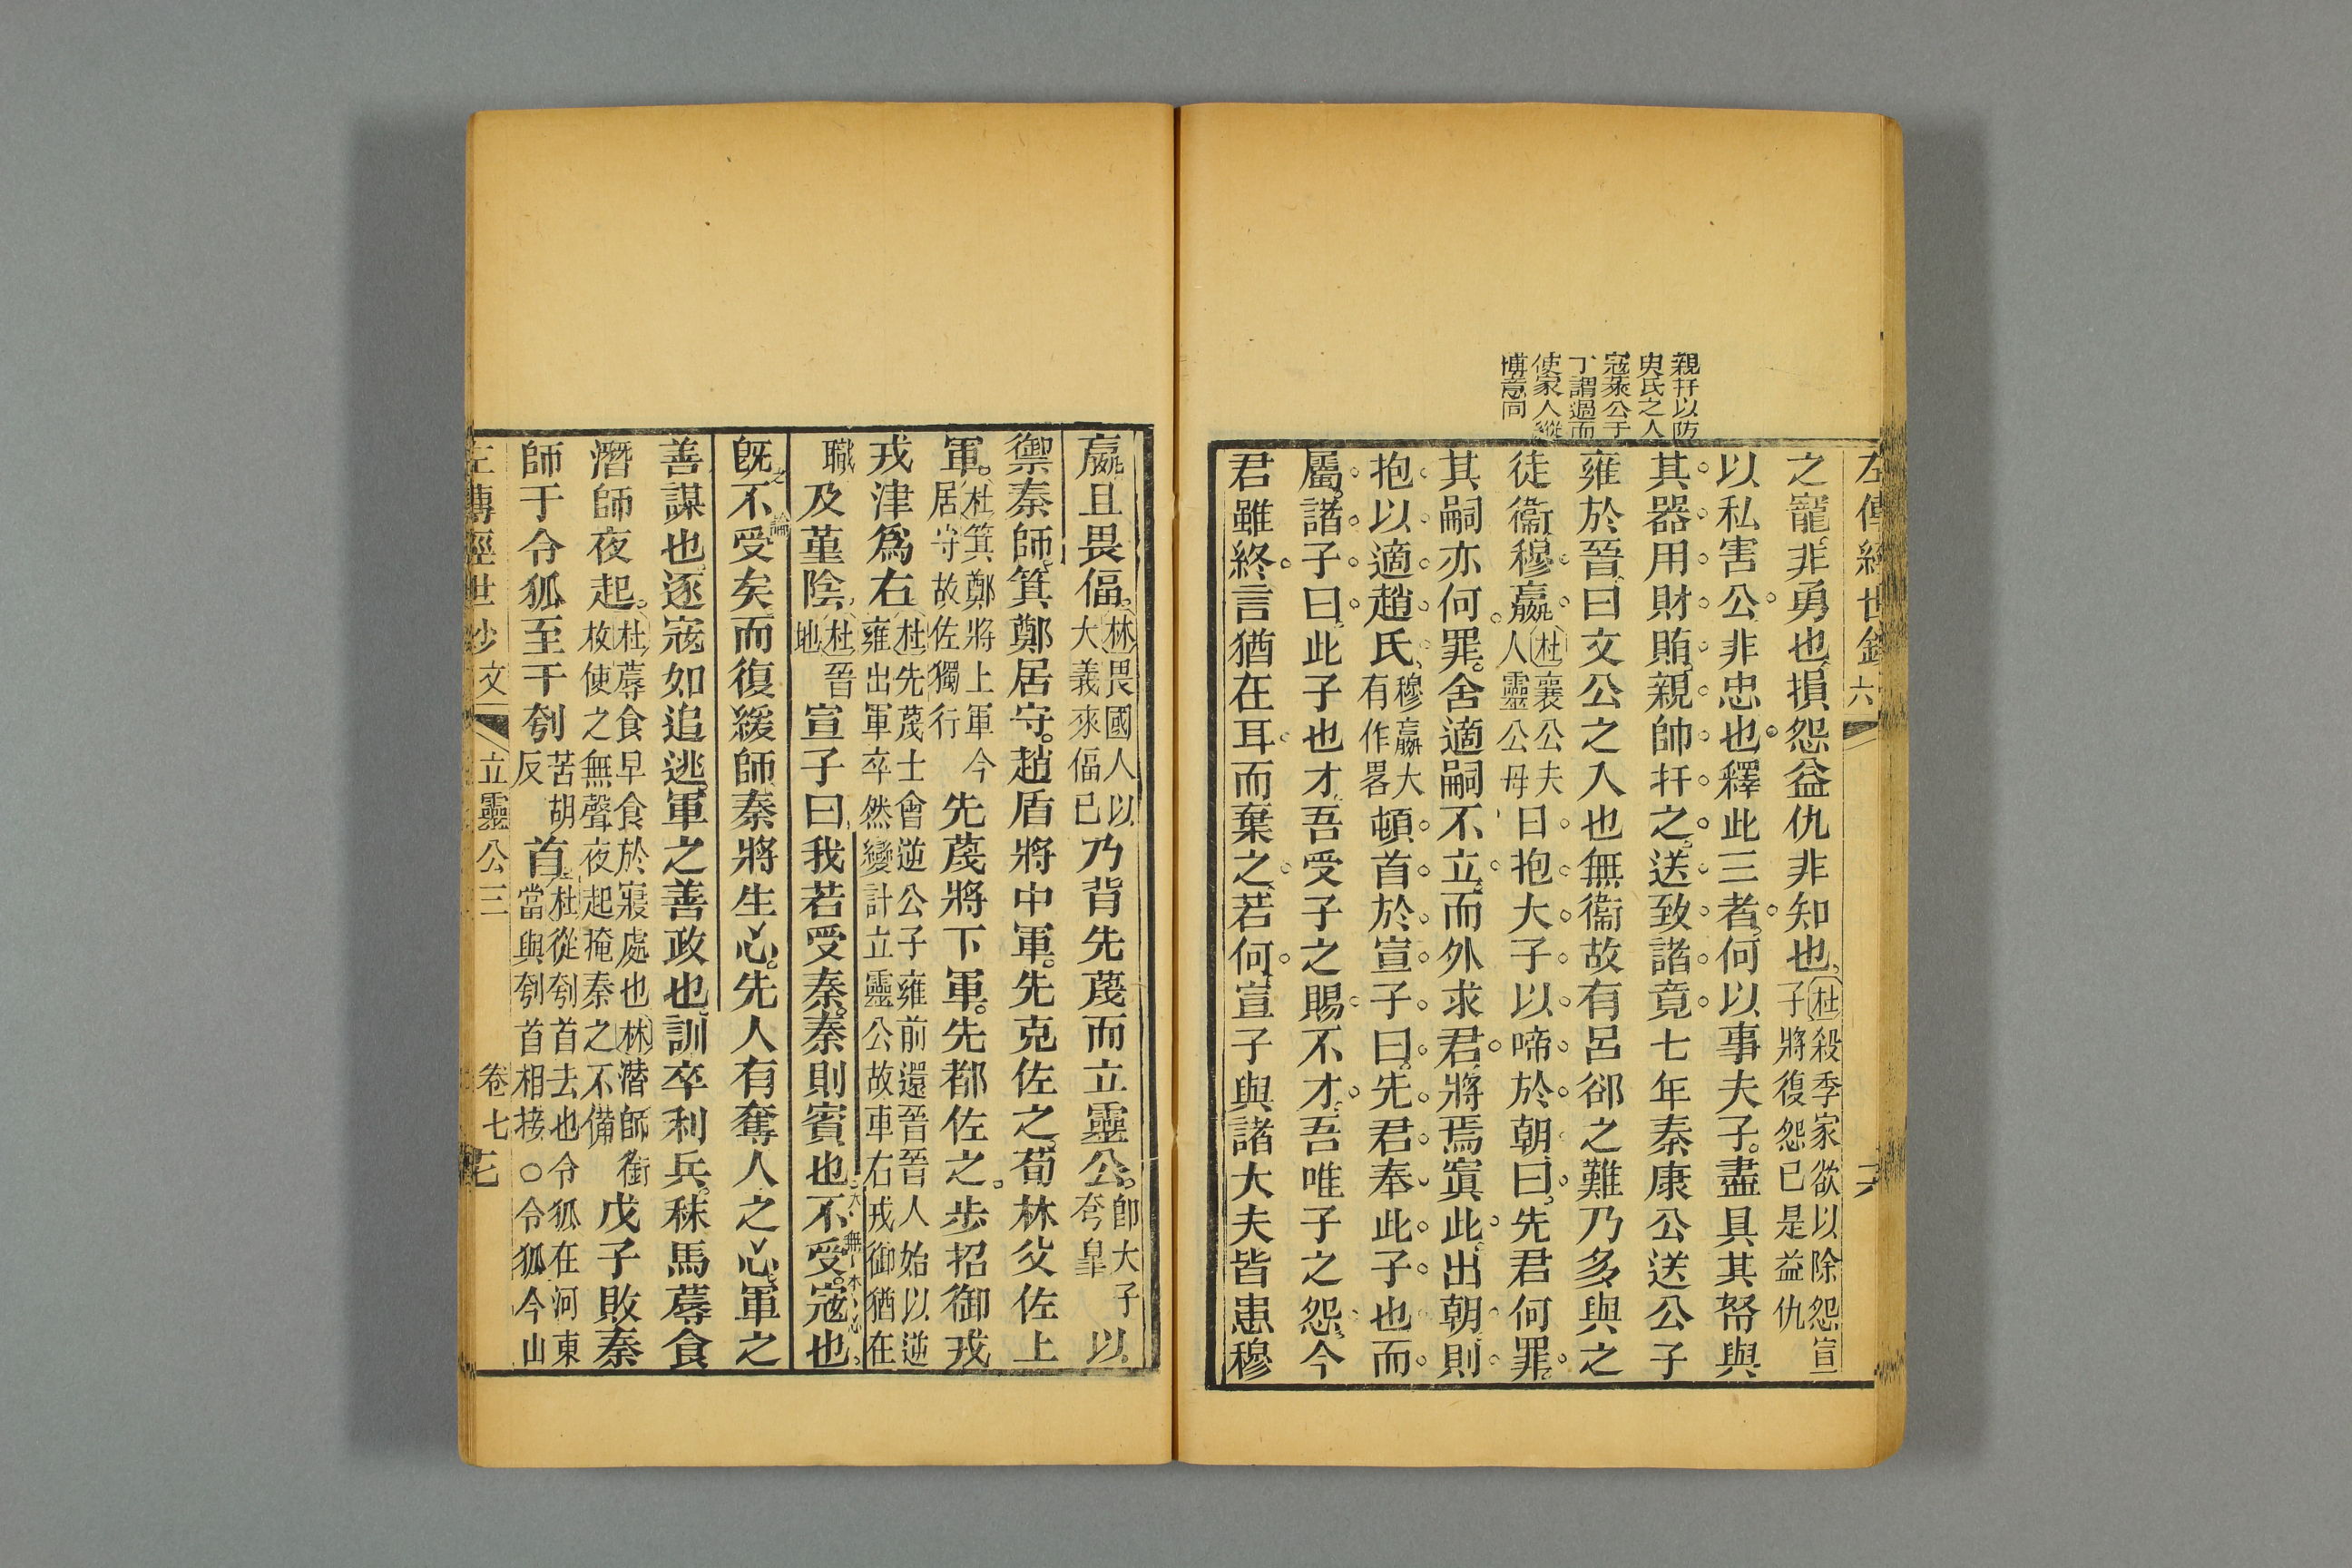 親扞以防
臾氏之人
寇萊公于
丁謂過而
使家人縱
博意同
左傳經世鈔 六
之寵非勇也損怨益仇非知也杜殺季家欲以除怨宣子將復怨已是益仇
以私害公非忠也釋此三者何以事夫子盡具其帑與
其器用財賄親帥扞之送致諸竟七年秦康公送公子
雍於晉曰文公之入也無衞故有呂郤之難乃多與之
徒衞穆嬴杜襄公夫人靈公母日抱大子以啼於朝曰先君何罪
其嗣亦何罪舍適嗣不立而外求君將焉寘此出朝則
抱以適趙氏穆嬴大有作畧頓首於宣子曰先君奉此子也而
屬諸子曰此子也才吾受子之賜不才吾唯子之怨今
君雖終言猶在耳而棄之若何宣子與諸大夫皆患穆
嬴且畏偪林畏國人以大義來偪已乃背先蔑而立靈公卽大子夸皐以
禦秦師箕鄭居守趙盾將中軍先克佐之荀林父佐上
軍杜箕鄭將上軍今居守故佐獨行先蔑將下軍先都佐之步招御戎
戎津爲右杜先蔑士會逆公子雍前還晉晉人始以逆雍出軍卒然變計立靈公故車右戎御猶在
職及堇陰杜晉地宣子曰我若受秦秦則賓也不受寇也
旣不受矣而復緩師秦將生心先人有奪人之心軍之
善謀也逐寇如追逃軍之善政也訓卒利兵秣馬蓐食
潛師夜起杜蓐食早食於寢處也林潛師銜枚使之無聲夜起掩秦之不備戊子敗秦
師于令狐至于刳苦胡反首杜從刳首去也令狐在河東當與刳首相接○令狐今山
左傳經世鈔 文 立靈公三 卷七